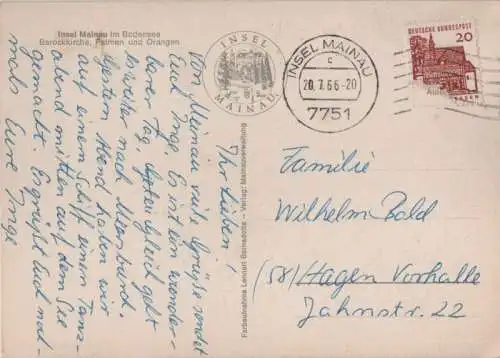 Insel Mainau im Bodensee
Barockkirche, Palmen und Orangen
INSEL
MAINAU
INSEL MAINAU
c
20.7.66-20
7751
DEUTSCHE BUNDESPOST
20
Ihr Lieben!
Von Mainau viele Grüße sendet
Euch Inge. Es ist ein wunder-
barer Tag. geht
es weiter nach Meersburg.
Gestern Abend haben wir
auf einem Schiff einen Tanz-
abend mitten auf dem See
gemacht. Es grüßt Euch noch-
mals Eure Inge
Farbaufnahme Lennart Bernadotte - Verlag: Mainauverwaltung
Familie
Wilhelm Bold
(58) Hagen Vorhalle
Jahnstr. 22